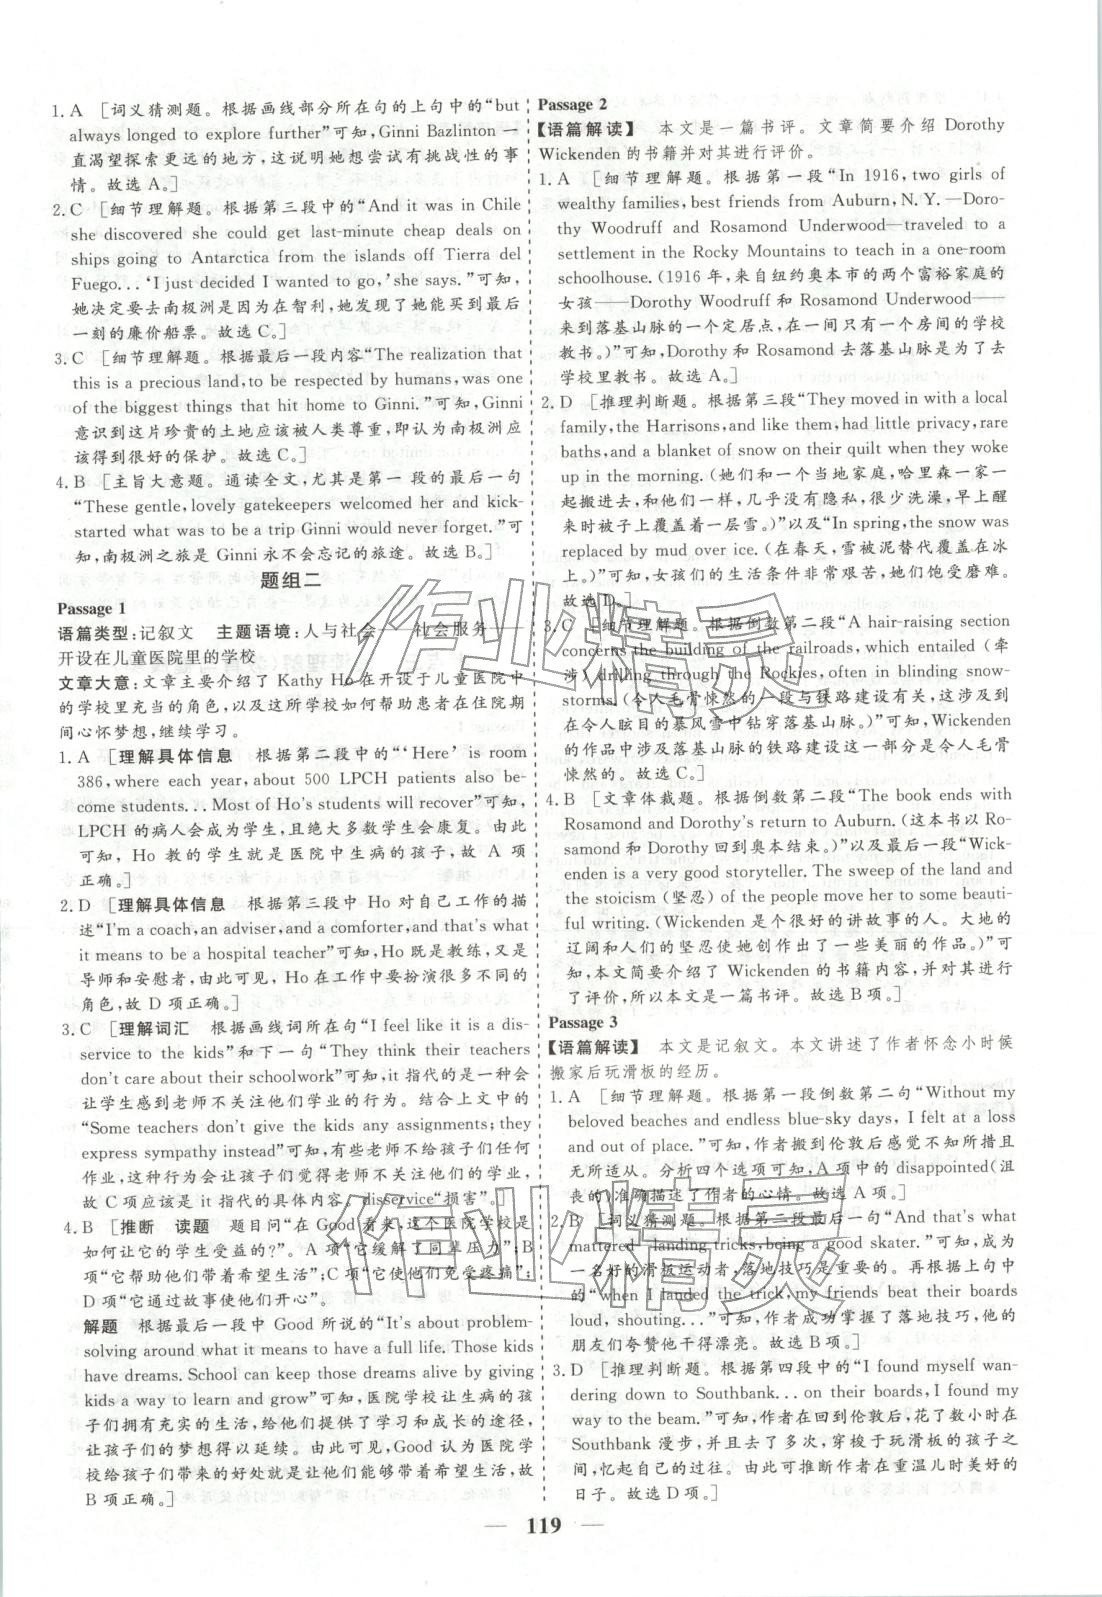 1. A [词义猜测题。根据画线部分所在句的上句中的“but
always longed to explore further”可知,Ginni Bazlinton 一
直渴望探索更远的地方,这说明她想尝试有挑战性的事
情。故选 A。]
2. C [细节理解题。根据第三段中的“And it was in Chile
she discovered she could get last-minute cheap deals on
ships going to Antarctica from the islands off Tierra del
Fuego...‘I just decided I wanted to go,’she says.”可知,
她决定要去南极洲是因为在智利,她发现了她能买到最后
一刻的廉价船票。故选 C。]
3. C [细节理解题。根据最后一段内容“The realization that
this is a precious land, to be respected by humans, was one
of the biggest things that hit home to Ginni.”可知,Ginni
意识到这片珍贵的土地应该被人类尊重,即认为南极洲应
该得到很好的保护。故选 C。]
4. B [主旨大意题。通读全文,尤其是第一 段的最后一句
“These gentle, lovely gatekeepers welcomed her and kick-
started what was to be a trip Ginni would never forget.”可
知,南极洲之旅是 Ginni 永不会忘记的旅途。故选 B。]
题组二
Passage 1
语篇类型:记叙文 主题语境:人与社会——社会服务——
开设在儿童医院里的学校
文章大意:文章主要介绍了 Kathy Ho 在开设于儿童医院中
的学校里充当的角色,以及这所学校如何帮助患者在住院期
间心怀梦想,继续学习。
1. A [理解具体信息 根据第二段中的“‘Here’ is room
386, where each year, about 500 LPCH patients also be-
come students... Most of Ho's students will recover”可知,
LPCH 的病人会成为学生,且绝大多数学生会康复。由此
可知, Ho 教的学生就是医院中生病的孩子,故 A 项正
确。]
2. D [理解具体信息 根据第三段中 Ho 对自己工作的描
述“I'm a coach, an adviser, and a comforter, and that's what
it means to be a hospital teacher”可知,Ho 既是教练,又是
导师和安慰者,由此可见,Ho 在工作中要扮演很多不同的
角色,故 D 项正确。]
3. C [理解词汇 根据画线词所在句“I feel like it is a dis-
service to the kids”和下一句“They think their teachers
don't care about their schoolwork”可知,it 指代的是一种会
让学生感到老师不关注他们学业的行为。结合上文中的
“Some teachers don't give the kids any assignments; they
express sympathy instead”可知,有些老师不给孩子们任何
作业,这种行为会让孩子们觉得老师不关注他们的学业,
故 C 项应该是 it 指代的具体内容。disservice“损害”。]
4. B [推断 读题 题目问“在 Good 看来,这个医院学校是
如何让它的学生受益的?”。A 项“它缓解了同辈压力”;B
项“它帮助他们带着希望生活”;C 项“它使他们免受疼痛”;
D 项“它通过故事使他们开心”。
解题 根据最后一段中 Good 所说的“It's about problem-
solving around what it means to have a full life. Those kids
have dreams. School can keep those dreams alive by giving
kids a way to learn and grow”可知,医院学校让生病的孩
子们拥有充实的生活,给他们提供了学习和成长的途径,
让孩子们的梦想得以延续。由此可见,Good 认为医院学
校给孩子们带来的好处就是让他们能带着希望生活,故
B 项正确。]
Passage 2
【语篇解读】 本文是一篇书评。文章简要介绍 Dorothy
Wickenden 的书籍并对其进行评价。
1. A [细节理解题。根据第一段“In 1916, two girls of
wealthy families, best friends from Auburn, N. Y. —Doro-
thy Woodruff and Rosamond Underwood—traveled to a
settlement in the Rocky Mountains to teach in a one-room
schoolhouse.(1916 年,来自纽约奥本市的两个富裕家庭的
女孩——Dorothy Woodruff 和 Rosamond Underwood——
来到落基山脉的一个定居点,在一间只有一个房间的学校
教书。)”可知,Dorothy 和 Rosamond 去落基山脉是为了去
学校里教书。故选 A。]
2. D [推理判断题。根据第三段“They moved in with a local
family, the Harrisons, and like them, had little privacy, rare
baths, and a blanket of snow on their quilt when they woke
up in the morning.(她们和一个当地家庭,哈里森一家一
起搬进去,和他们一样,几乎没有隐私,很少洗澡,早上醒
来时被子上覆盖着一层雪。)”以及“In spring, the snow was
replaced by mud over ice.(在春天,雪被泥替代覆盖在冰
上。)”可知,女孩们的生活条件非常艰苦,她们饱受磨难。
故选 D。]
3. C [细节理解题。根据倒数第二段“A hair-raising section
concerns the building of the railroads, which entailed (牵涉)
drilling through the Rockies, often in blinding snow-
storms.(令人毛骨悚然的一段与铁路建设有关,这涉及到
在令人眩目的暴风雪中钻穿落基山脉。)”可知,Wickenden
的作品中涉及落基山脉的铁路建设这一部分是令人毛骨
悚然的。故选 C。]
4. B [文章体裁题。根据倒数第二段“The book ends with
Rosamond and Dorothy's return to Auburn.(这本书以 Ro-
samond 和 Dorothy 回到奥本结束。)”以及最后一段“Wick-
enden is a very good storyteller. The sweep of the land and
the stoicism (坚忍) of the people move her to some beauti-
ful writing.(Wickenden 是个很好的讲故事的人。大地的
辽阔和人们的坚忍使她创作出了一些美丽的作品。)”可
知,本文简要介绍了 Wickenden 的书籍内容,并对其进行
了评价,所以本文是一篇书评。故选 B 项。]
Passage 3
【语篇解读】 本文是记叙文。本文讲述了作者怀念小时候
搬家后玩滑板的经历。
1. A [细节理解题。根据第一段倒数第二句“Without my
beloved beaches and endless blue-sky days, I felt at a loss
and out of place.”可知,作者搬到伦敦后感觉不知所措且
无所适从。分析四个选项可知,A 项中的 disappointed(沮
丧的)准确描述了作者的心情。故选 A 项。]
2. B [词义猜测题。根据第二段最后一句“And that's what
mattered—landing tricks, being a good skater.”可知,成为
一名好的滑板运动者,落地技巧是重要的。再根据上句中
的“when I landed the trick, my friends beat their boards
loud, shouting...”可知,作者成功掌握了落地技巧,他的
朋友们夸赞他干得漂亮。故选 B 项。]
3. D [推理判断题。根据第四段中的“I found myself wan-
dering down to Southbank... on their boards, I found my
way to the beam.”可知,作者在回到伦敦后,花了数小时在
Southbank 漫步,并且去了多次,穿梭于玩滑板的孩子之
间,忆起自己的过往。由此可推断作者在重温儿时美好的
日子。故选 D 项。]
119
作业精灵
作业精灵